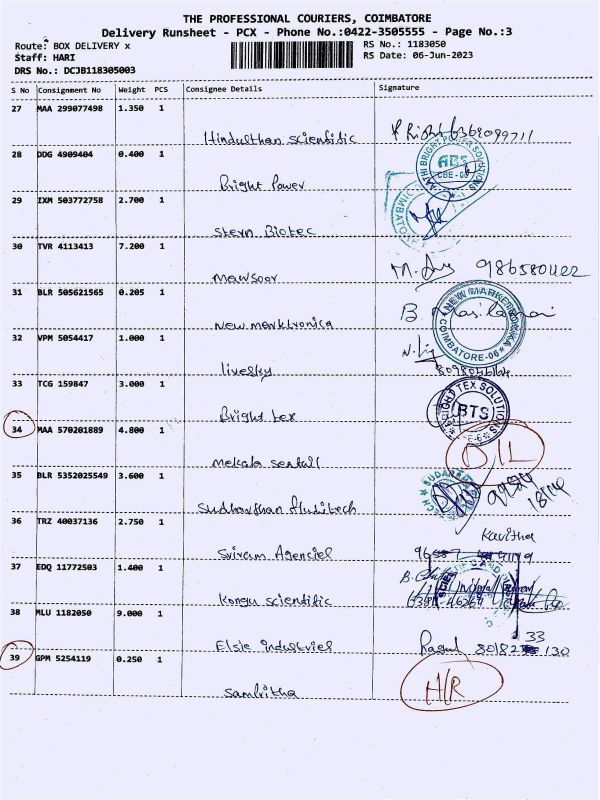 THE PROFESSIONAL COURIERS, COIMBATORE
Delivery Runsheet - PCX - Phone No.:0422-3505555 - Page No.:3
Route: BOX DELIVERY x
RS No.: 1183050
Staff: HARI
RS Date: 06-Jun-2023
DRS No.: DCJB118305003
S No Consignment No Weight PCS Consignee Details Signature
27 MAA 299077498 1.350 1
Hindusthan scientific
28 DDG 4909404 0.400 1
Bright Power
ABS
CBE-
29 IXM 503772758 2.700 1
Stern Biotec
30 TVR 4113413 7.200 1
mawsoor
31 BLR 505621565 0.205 1
New marktronica
NEW MARK
COIMBATORE-06
32 VPM 5054417 1.000 1
livesky
33 TCG 159847 3.000 1
Bright tex
BRIGHT TEX SOLUTIONS
BTS
34 MAA 570201889 4.800 1
mekala sentail
D/L
35 BLR 5352025549 3.600 1
Sudharshan
36 TRZ 40037136 2.750 1
Kavitha
Sriram Agenciel
37 EDQ 11772503 1.400 1
Kongu scientific
38 MLU 1182050 9.000 1
Elsie industriel
33
130
39 GPM 5254119 0.250 1
Samlritha
H/R